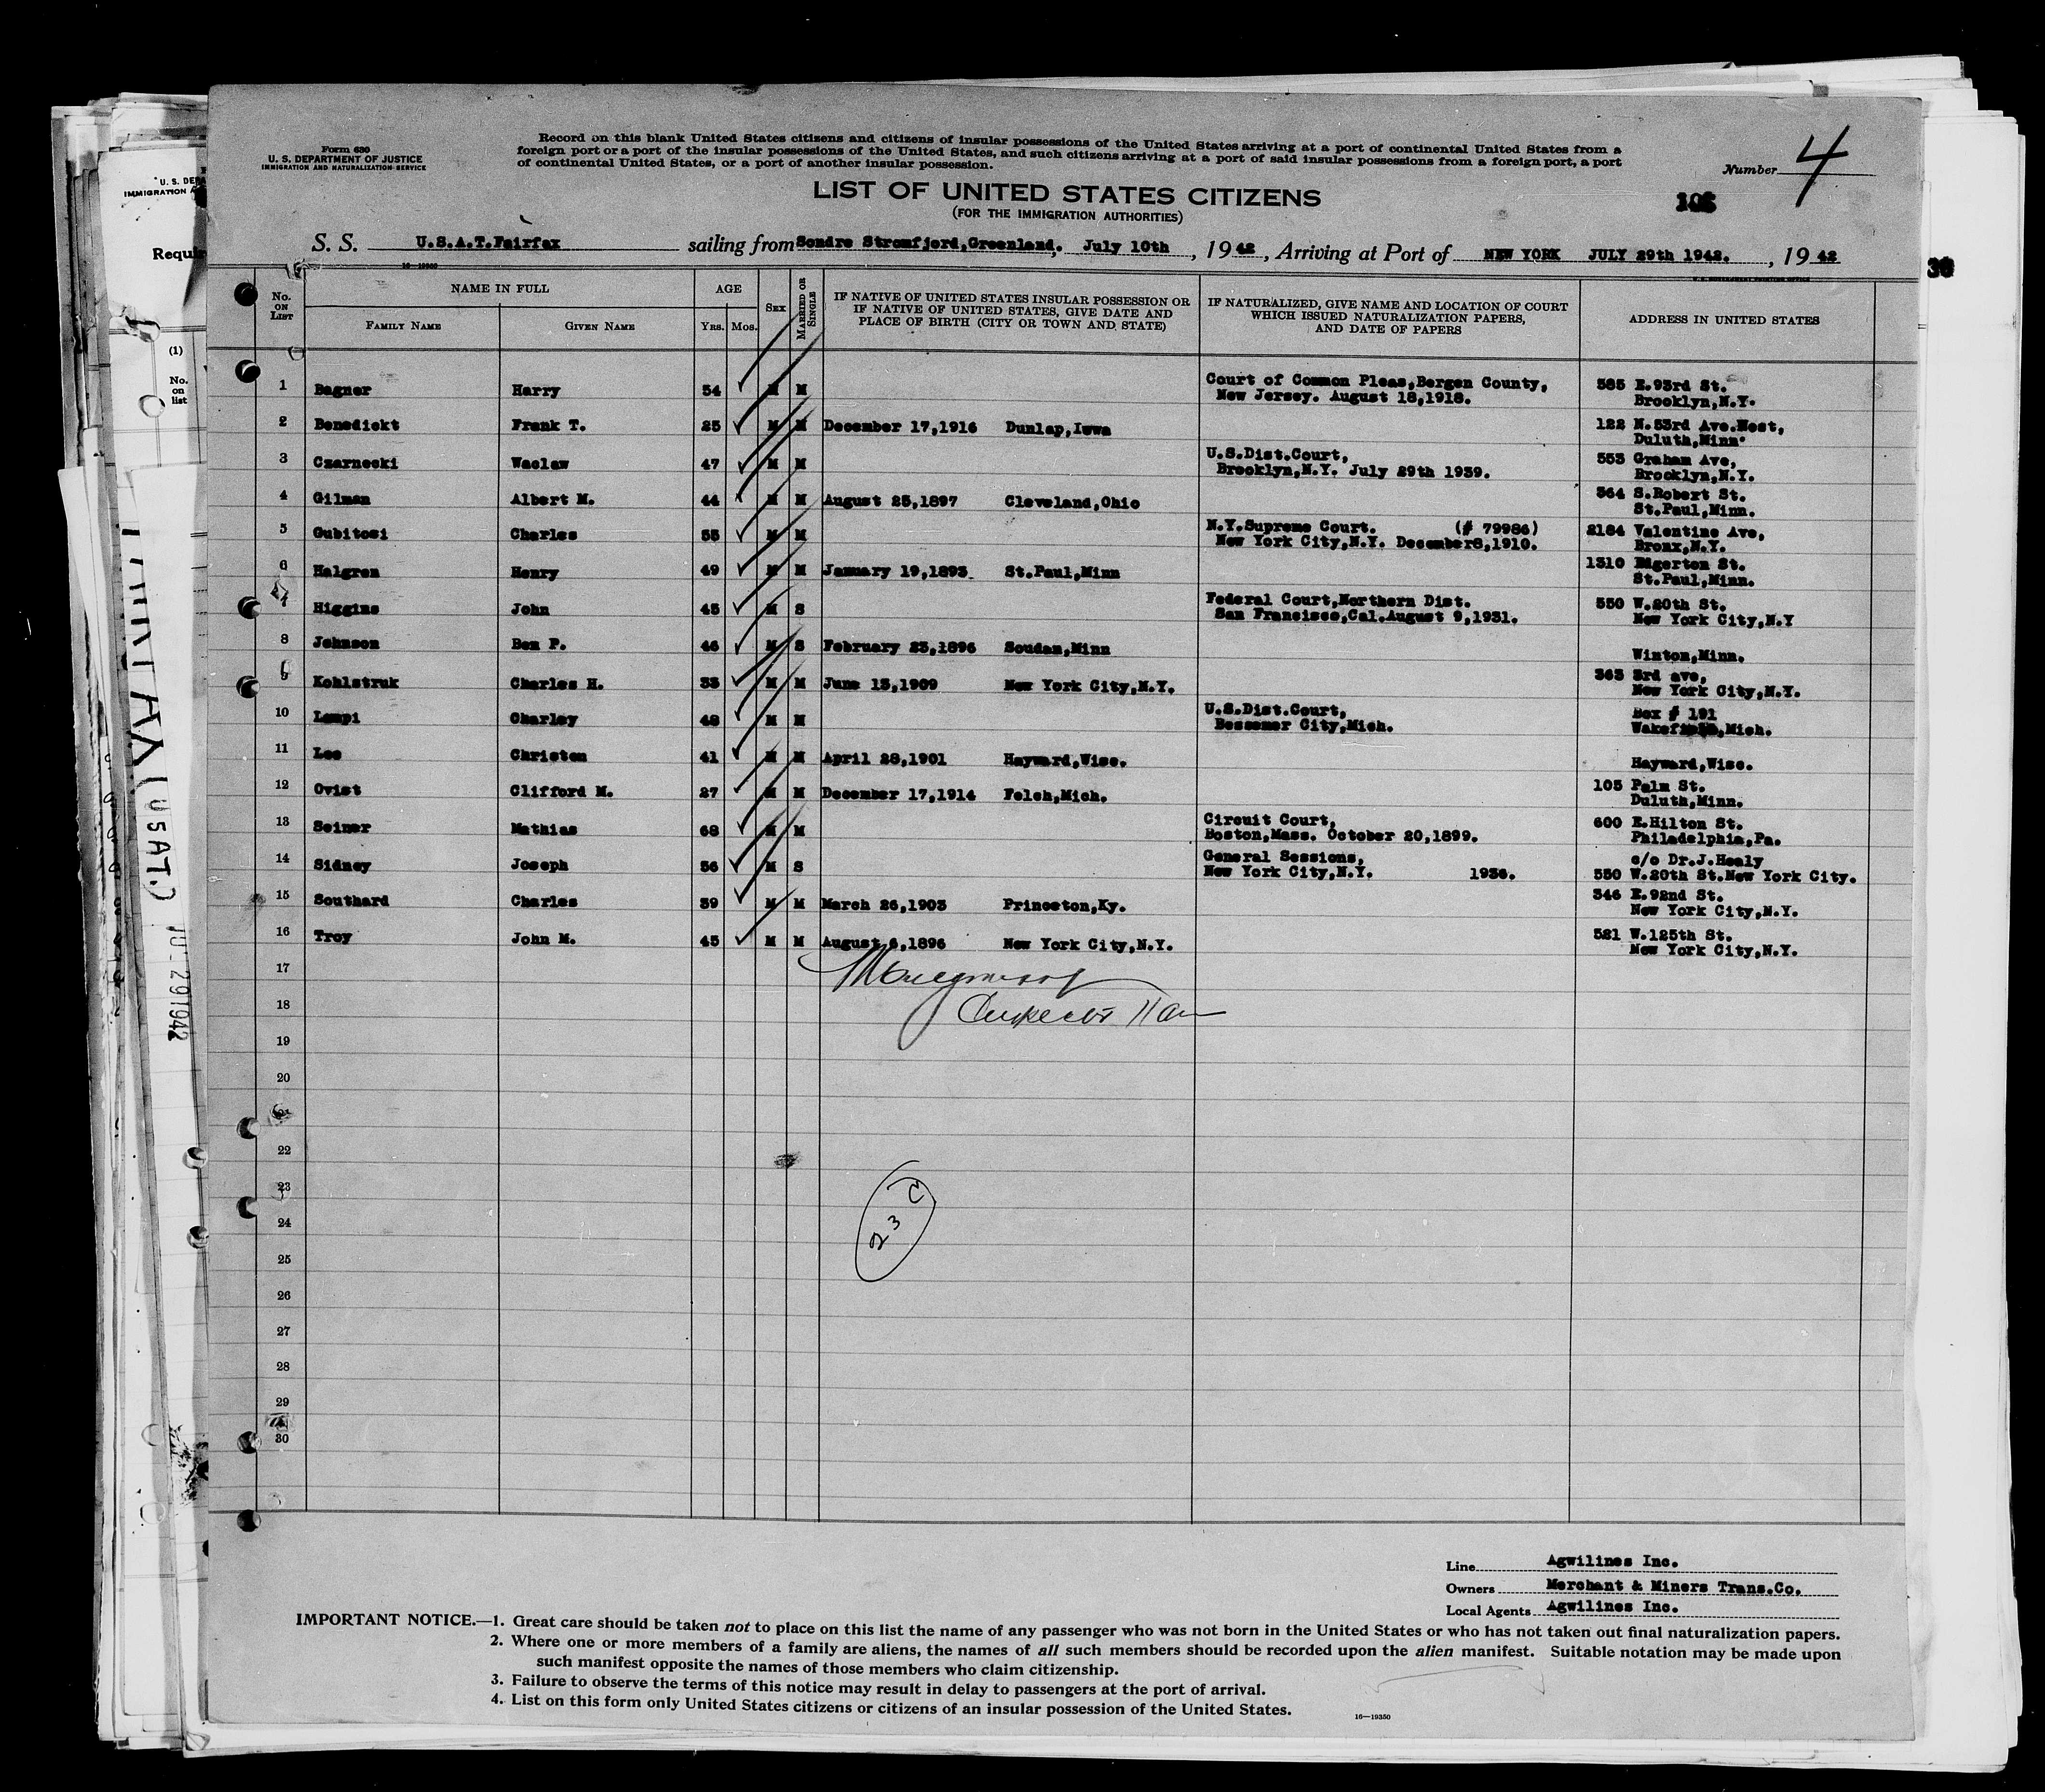 Form 630
U. S. DEPARTMENT OF JUSTICE
IMMIGRATION AND NATURALIZATION SERVICE
Record on this blank United States citizens and citizens of insular possessions of the United States arriving at a port of continental United States from a
foreign port or a port of the insular possessions of the United States, and such citizens arriving at a port of said insular possessions from a foreign port, a port
of continental United States, or a port of another insular possession.
Number 4
LIST OF UNITED STATES CITIZENS
(FOR THE IMMIGRATION AUTHORITIES)
S. S. U.S.A.T.Fairfax sailing from Sondre Stromfjord,Greenland. July 10th, 1942, Arriving at Port of NEW YORK JULY 29th 1942. , 1942
16-19350
No. on List NAME IN FULL AGE Sex Married or Single IF NATIVE OF UNITED STATES INSULAR POSSESSION OR IF NATIVE OF UNITED STATES, GIVE DATE AND PLACE OF BIRTH (CITY OR TOWN AND STATE) IF NATURALIZED, GIVE NAME AND LOCATION OF COURT WHICH ISSUED NATURALIZATION PAPERS, AND DATE OF PAPERS ADDRESS IN UNITED STATES
Family Name Given Name Yrs. Mos.
1 Bagner Harry 54 M M Court of Common Pleas,Bergen County, New Jersey. August 18,1918. 585 E.93rd St. Brooklyn,N.Y.
2 Benedickt Frank T. 25 M M December 17,1916 Dunlap,Iowa 122 N.53rd Ave.West, Duluth,Minn.
3 Czarnecki Waclaw 47 M M U.S.Dist.Court, Brooklyn,N.Y. July 29th 1939. 553 Graham Ave, Brooklyn,N.Y.
4 Gilman Albert M. 44 M M August 25,1897 Cleveland,Ohio 564 S.Robert St. St.Paul,Minn.
5 Gubitosi Charles 55 M M N.Y.Supreme Court. (# 79986) New York City,N.Y. December8,1910. 2184 Valentine Ave, Bronx,N.Y.
6 Halgren Henry 49 M M January 19,1893. St.Paul,Minn 1310 Edgerton St. St.Paul,Minn.
7 Higgins John 45 M S Federal Court,Northern Dist. San Francisco,Cal.August 9,1931. 550 W.20th St. New York City,N.Y
8 Johnson Ben P. 46 M S February 23,1896 Soudan,Minn Winton,Minn.
9 Kohlstruk Charles H. 33 M M June 13,1909 New York City,N.Y. 363 3rd ave, New York City,N.Y.
10 Lampi Charley 48 M M U.S.Dist.Court, Bessemer City,Mich. Box # 191 Wakefield,Mich.
11 Lee Christen 41 M M April 28,1901 Hayward,Wisc. Hayward,Wisc.
12 Ovist Clifford M. 27 M M December 17,1914 Felch,Mich. 105 Palm St. Duluth,Minn.
13 Seiner Mathias 68 M M Circuit Court, Boston,Mass. October 20,1899. 600 E.Hilton St. Philadelphia,Pa.
14 Sidney Joseph 56 M S General Sessions, New York City,N.Y. 1936. c/o Dr.J.Healy 550 W.20th St.New York City.
15 Southard Charles 39 M M March 26,1903 Princeton,Ky. 346 E.92nd St. New York City,N.Y.
16 Troy John M. 45 M M August 6,1896 New York City,N.Y. 521 W.125th St. New York City,N.Y.
17
18
19
20
21
22
23
24
25
26
27
28
29
30
23 C
Line Agwilines Inc.
Owners Merchant & Miners Trans.Co.
Local Agents Agwilines Inc.
IMPORTANT NOTICE.—1. Great care should be taken not to place on this list the name of any passenger who was not born in the United States or who has not taken out final naturalization papers.
2. Where one or more members of a family are aliens, the names of all such members should be recorded upon the alien manifest. Suitable notation may be made upon
such manifest opposite the names of those members who claim citizenship.
3. Failure to observe the terms of this notice may result in delay to passengers at the port of arrival.
4. List on this form only United States citizens or citizens of an insular possession of the United States.
16—19350
U. S. DEPA
IMMIGRATION A
Requir
(1)
No. on list
(USAT.)
JUL 29 1942